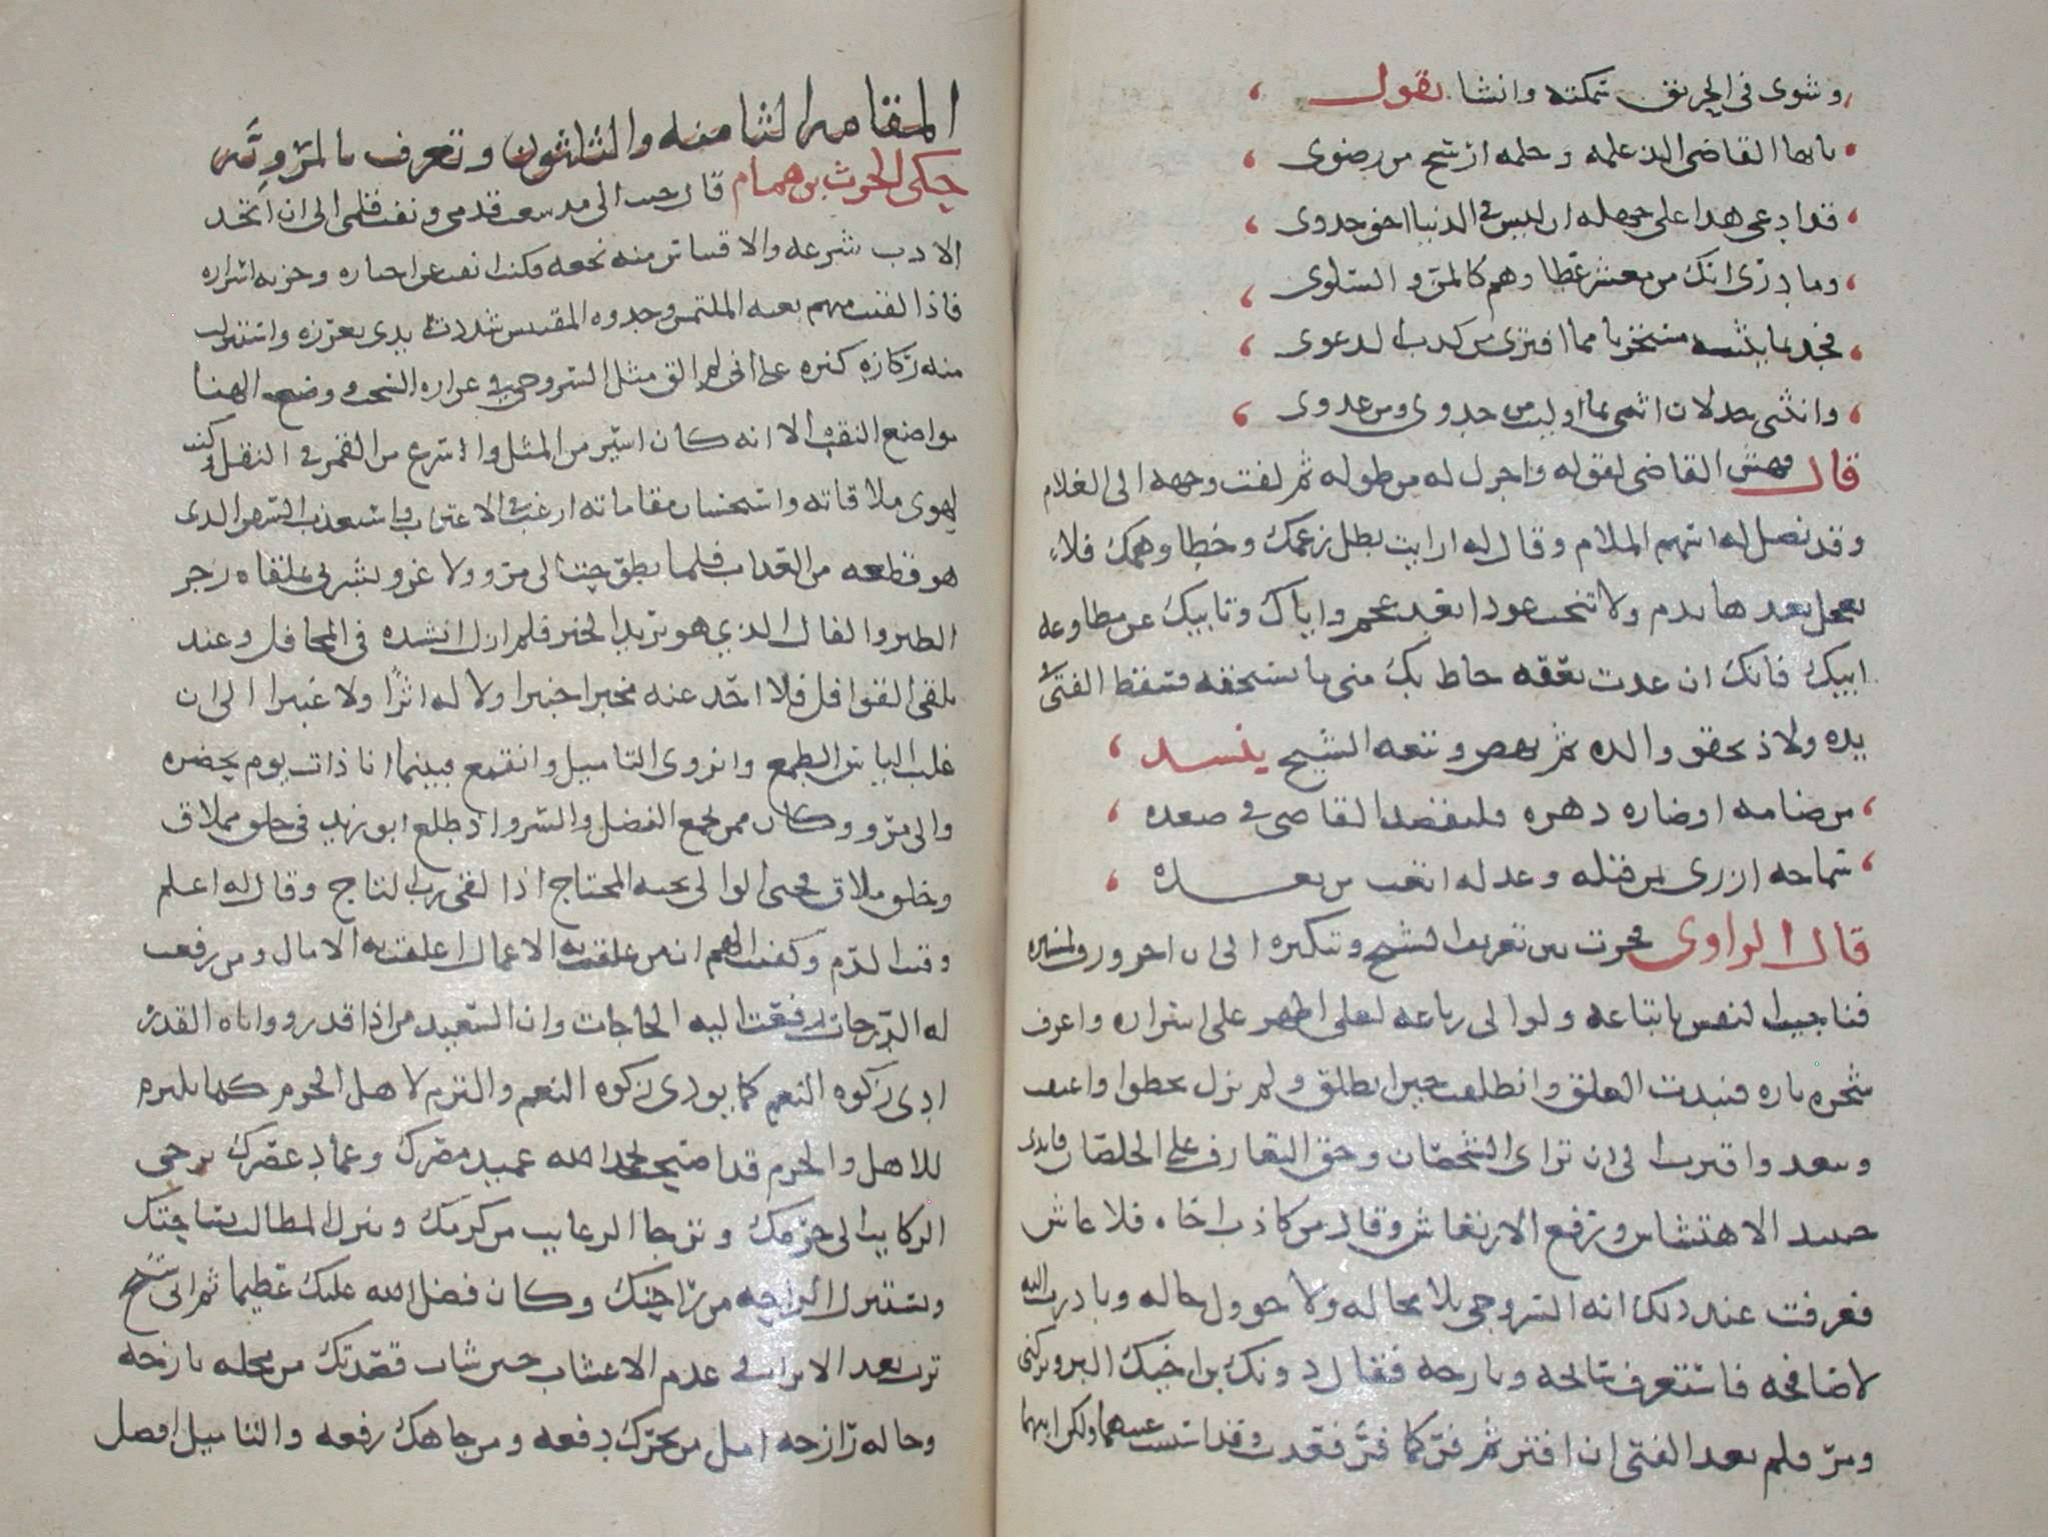 وشوى في الحريق سمكته وانشا يقول
يا ايها القاضي الذي علمه وحلمه ارسخ من رضوى
قد ادعى هذا على جهله ان ليس في الدنيا اخو جدوى
وما درى انك من معشر عطا وهم كالمن والسلوى
فجد بما يثنيه مستخزيا مما افترى من كذب الدعوى
وانثنى جدلان اثني بما اوليت من جدوى ومن عدوى
قال فهش القاضي لقوله واجزل له من طوله ثم لفت وجهه الى الغلام
وقد نصل له اسهم الملام وقال له ارايت بطل زعمك وخطا وهمك فلا
تعجل بعدها بذم ولا تنحت عودا بعد عجم واياك وتابيك عن مطاوعة
ابيك فانك ان عدت تعقه حاط بك مني ما تستحقه فسقط الفتى في
يده ولاذ بحقو والده ثم نهض وتبعه الشيخ ينشد
من ضامه اوضاره دهره فليقصد القاضي في صعده
سماحه ازرى بمن قبله وعدله اتعب من بعده
قال الراوي فحرت بين تعريف الشيخ وتنكيره الى ان احرورف لمسيره
فناجيت النفس باتباعه ولو الى رباعه لعلي اظهر على اسراره واعرف
شجره ناره فنبذت العلق وانطلقت حيث انطلق ولم يزل يخطو واعتقب
ويبعد واقترب الى ان تراى الشخصان وحق التعارف على الخلصان فابدى
حينيد الاهتشاش ورفع الارتعاش وقال من كاذب اخاه فلا عاش
فعرفت عند ذلك انه السروجي بلا محاله ولا حوول حاله وبادرت اليه
لاصافحه فاستعرف سانحه وبارحه فقال دونك بن اخيك البر وتركني
ومر فلم يعد الفتى ان افتر ثم فر كما فر فعدت وقد استبنت عينهما ولكن اينهما
المقامه الثامنه والثلثون وتعرف بالمروية
حكى الحرث بن همام قال حبب الي مد سعت قدمي ونفت قلمي الى ان اتخذ
الادب شرعه والاقتباس منه نجعه فكنت انقب عن اخباره وخزنه اسراره
فاذا الفيت منهم بغيه الملتمس وجدوه المقتبس شددت يدي بغرزه واستنزلت
منه زكاه كنزه على اني لم الق مثل السروجي في غزاره السحب ووضع الهنا
مواضع النقب الا انه كان اسير من المثل واسرع من القمر في النقل وكنت
لهوى ملاقاته واستحسان مقاماته ارغب في الاغتراب واستعذب السفر الذي
هو قطعه من العذاب فلما تطوحت الى مرو ولا غرو بشرني بملقاه زجر
الطير والفال الذي هو بريد الخير فلم ازل انشده في المحافل وعند
تلقي القوافل فلا اجد عنه مخبرا خبيرا ولا له اثرا ولا عثيرا الى ان
غلب الياس الطمع وانزوى التاميل وانقمع فبينما انا ذات يوم بحضره
والي مرو وكان ممن جمع الفضل والسرو اذ طلع ابو زيد في خلق مملاق
وخلق ملاق فحيى الوالي تحيه المحتاج اذا لقي رب التاج وقال له اعلم
وقيت الذم وكفيت الهم ان من علقت به الاعمال اعلقت به الامال ومن رفعت
له الدرجات رفعت اليه الحاجات وان السعيد من اذا قدر وواتاه القدر
ادى زكوه النعم كما يودي زكوه النعم والتزم لاهل الحرم كما يلتزم
للاهل والحرم قد اصبحت بحمد الله عميد مصرك وعماد عصرك تزجى
الركايب الى حرمك وترجا الرغايب من كرمك وتنزل المطالب بساحتك
وتستنزل الراحه من راحتك وكان فضل الله عليك عظيما ثم اني شيخ
ترب بعد الاتراب وعدم الاعشاب حين شاب قصدتك من محله نازحه
وحاله رازحه امل من بحرك دفعه ومن جاهك رفعه والتاميل افضل